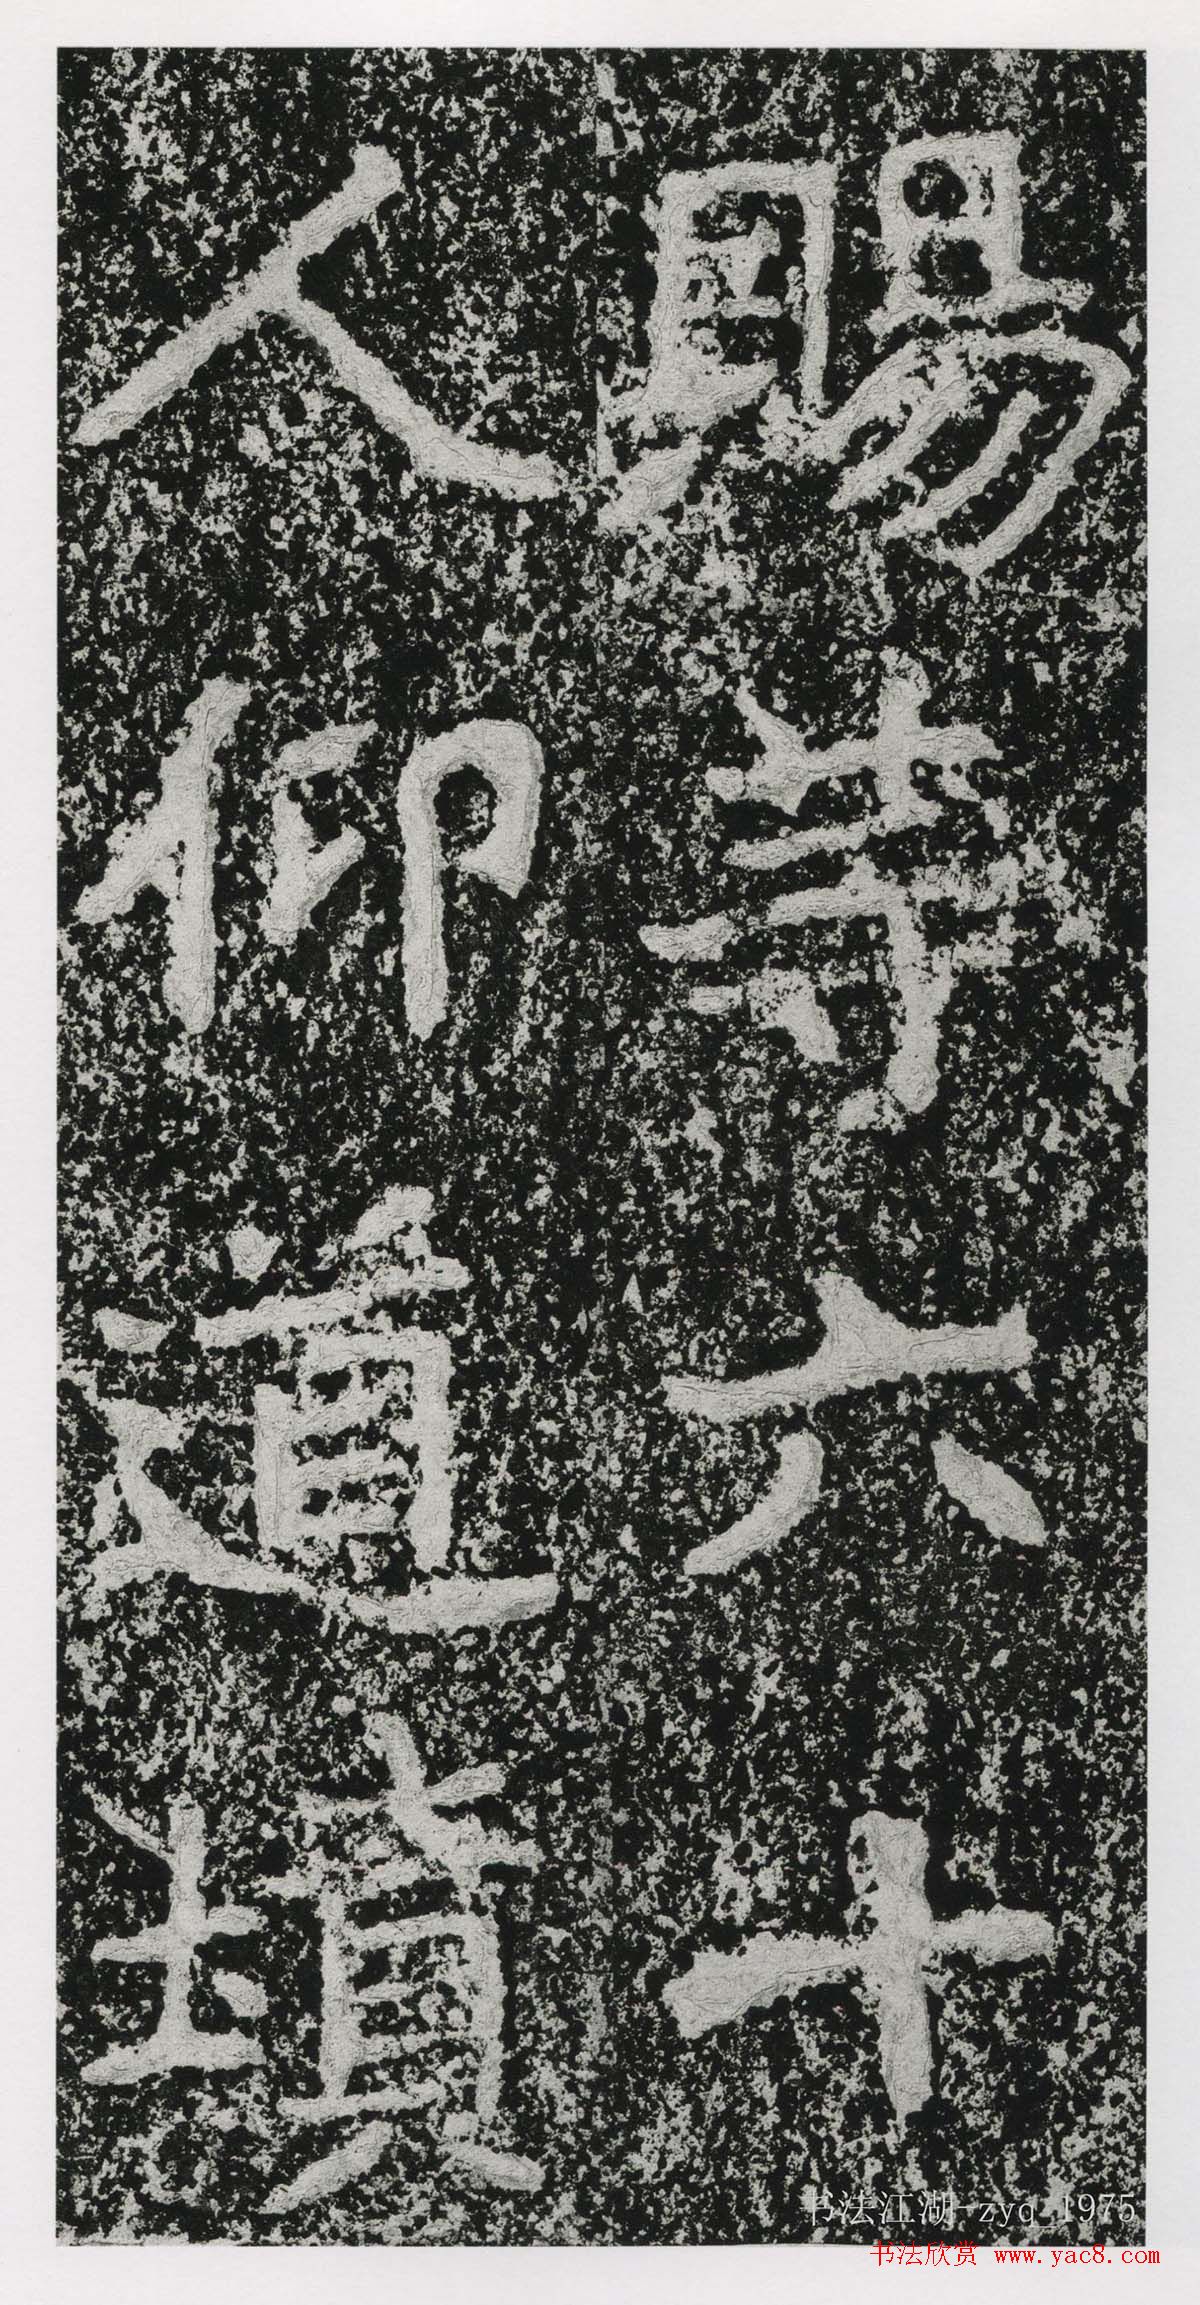 賜等六十
人仰道墳
书法江湖-zyq_1975
书法欣赏 www.yac8.com